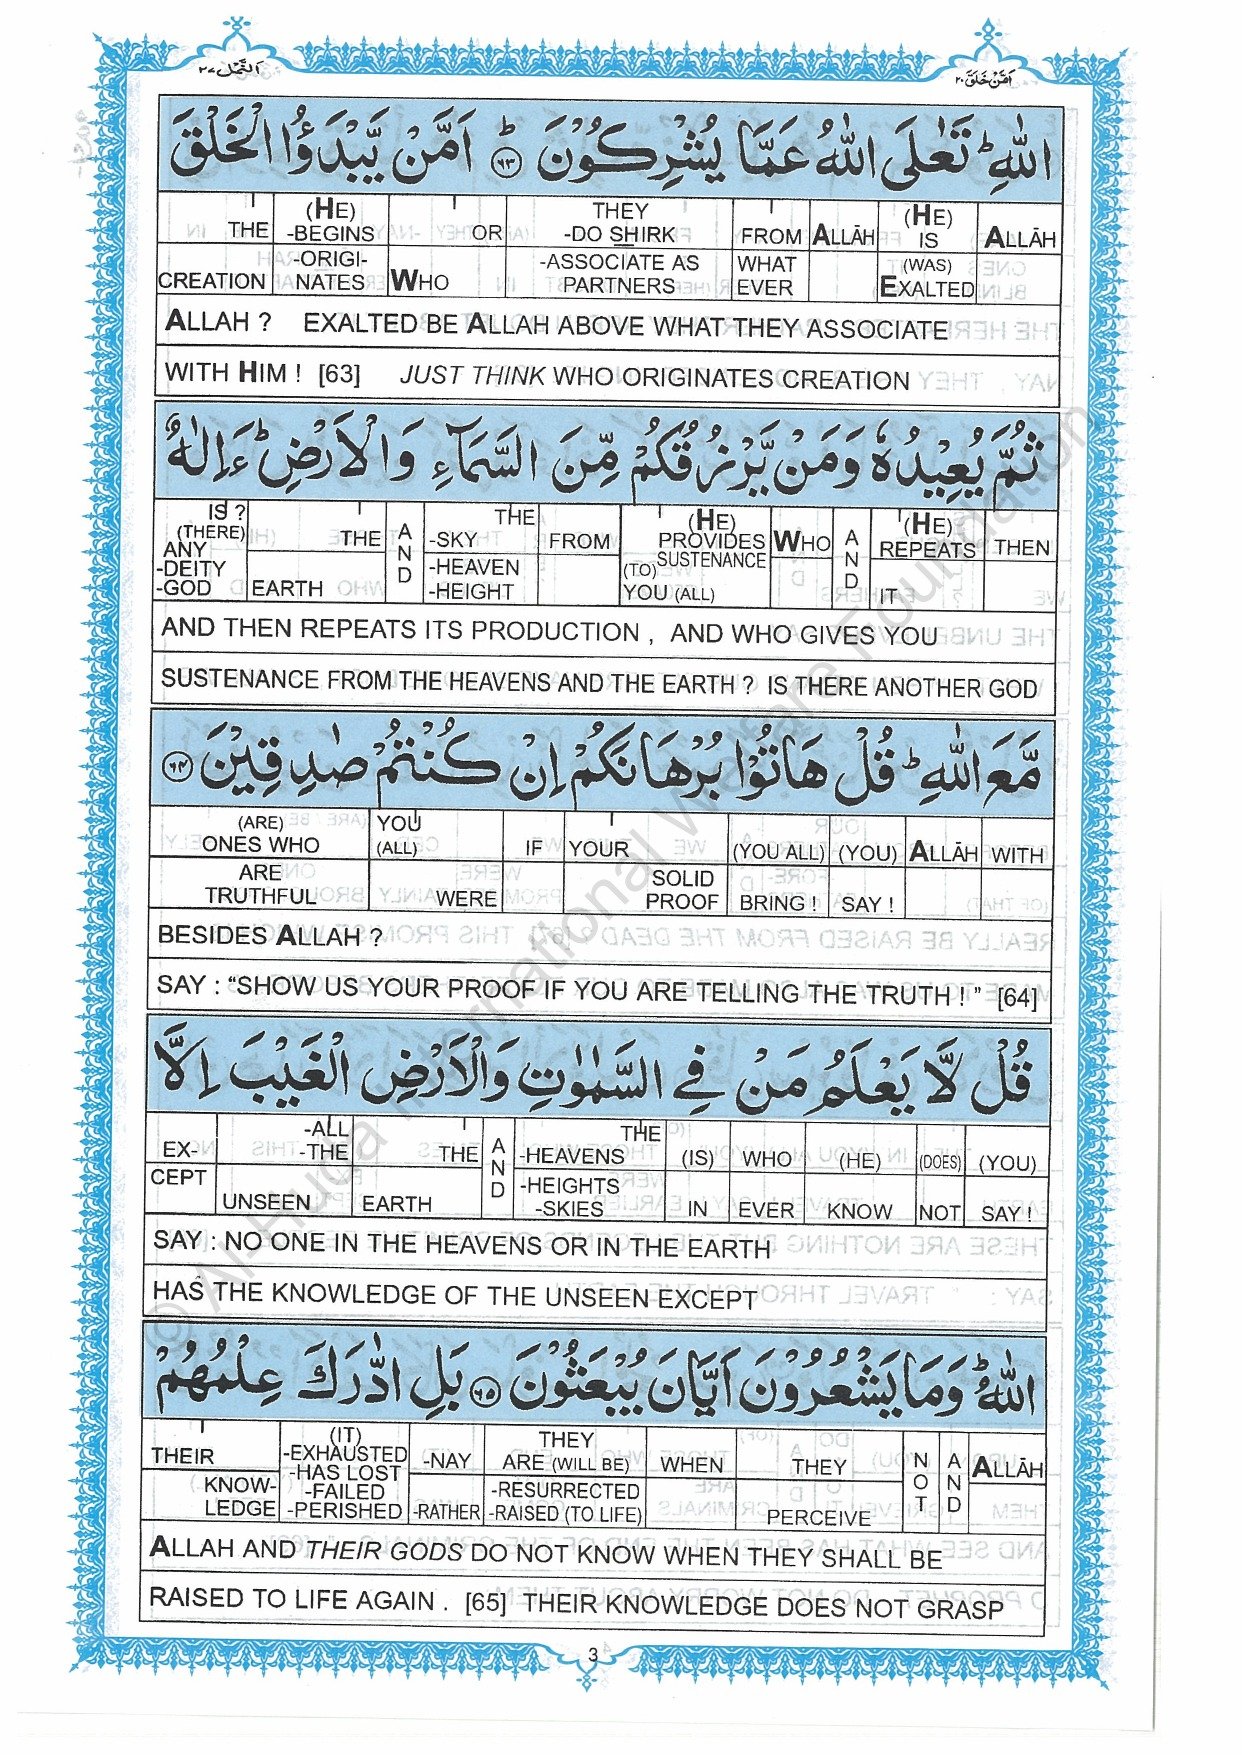 النمل ٢٧
امن خلق ٢٠
اللّٰهِ ؕ تَعٰلَى اللّٰهُ عَمَّا يُشْرِكُوْنَ ؕ ﴿٦٣﴾ اَمَّنْ يَّبْدَؤُا الْخَلْقَ
THE (HE) -BEGINS OR THEY -DO SHIRK FROM ALLĀH (HE) IS ALLĀH
CREATION -ORIGI- NATES WHO -ASSOCIATE AS PARTNERS WHAT EVER (WAS) EXALTED
ALLAH ? EXALTED BE ALLAH ABOVE WHAT THEY ASSOCIATE
WITH HIM ! [63] JUST THINK WHO ORIGINATES CREATION
ثُمَّ يُعِيْدُهٗ وَمَنْ يَّرْزُقُكُمْ مِّنَ السَّمَآءِ وَالْاَرْضِ ؕ ءَاِلٰهٌ
IS ? (THERE) ANY -DEITY -GOD THE AND THE -SKY FROM (HE) PROVIDES SUSTENANCE WHO AND (HE) REPEATS THEN
EARTH -HEAVEN -HEIGHT (TO) YOU (ALL) IT
AND THEN REPEATS ITS PRODUCTION , AND WHO GIVES YOU
SUSTENANCE FROM THE HEAVENS AND THE EARTH ? IS THERE ANOTHER GOD
مَّعَ اللّٰهِ ؕ قُلْ هَاتُوْا بُرْهَانَكُمْ اِنْ كُنْتُمْ صٰدِقِيْنَ ﴿٦٤﴾
(ARE) ONES WHO YOU (ALL) IF YOUR (YOU ALL) (YOU) ALLĀH WITH
ARE TRUTHFUL WERE SOLID PROOF BRING ! SAY !
BESIDES ALLAH ?
SAY : “SHOW US YOUR PROOF IF YOU ARE TELLING THE TRUTH ! ” [64]
قُلْ لَّا يَعْلَمُ مَنْ فِي السَّمٰوٰتِ وَالْاَرْضِ الْغَيْبَ اِلَّا
EX- -ALL -THE THE AND THE -HEAVENS (IS) WHO (HE) (DOES) (YOU)
CEPT UNSEEN EARTH -HEIGHTS -SKIES IN EVER KNOW NOT SAY !
SAY : NO ONE IN THE HEAVENS OR IN THE EARTH
HAS THE KNOWLEDGE OF THE UNSEEN EXCEPT
اللّٰهُ ؕ وَمَا يَشْعُرُوْنَ اَيَّانَ يُبْعَثُوْنَ ﴿٦٥﴾ بَلِ ادّٰرَكَ عِلْمُهُمْ
THEIR (IT) -EXHAUSTED -HAS LOST -NAY THEY ARE (WILL BE) WHEN THEY NOT AND ALLĀH
KNOW- LEDGE -FAILED -PERISHED -RATHER -RESURRECTED -RAISED (TO LIFE) PERCEIVE
ALLAH AND THEIR GODS DO NOT KNOW WHEN THEY SHALL BE
RAISED TO LIFE AGAIN . [65] THEIR KNOWLEDGE DOES NOT GRASP
3
© Al-Huda International Welfare Foundation